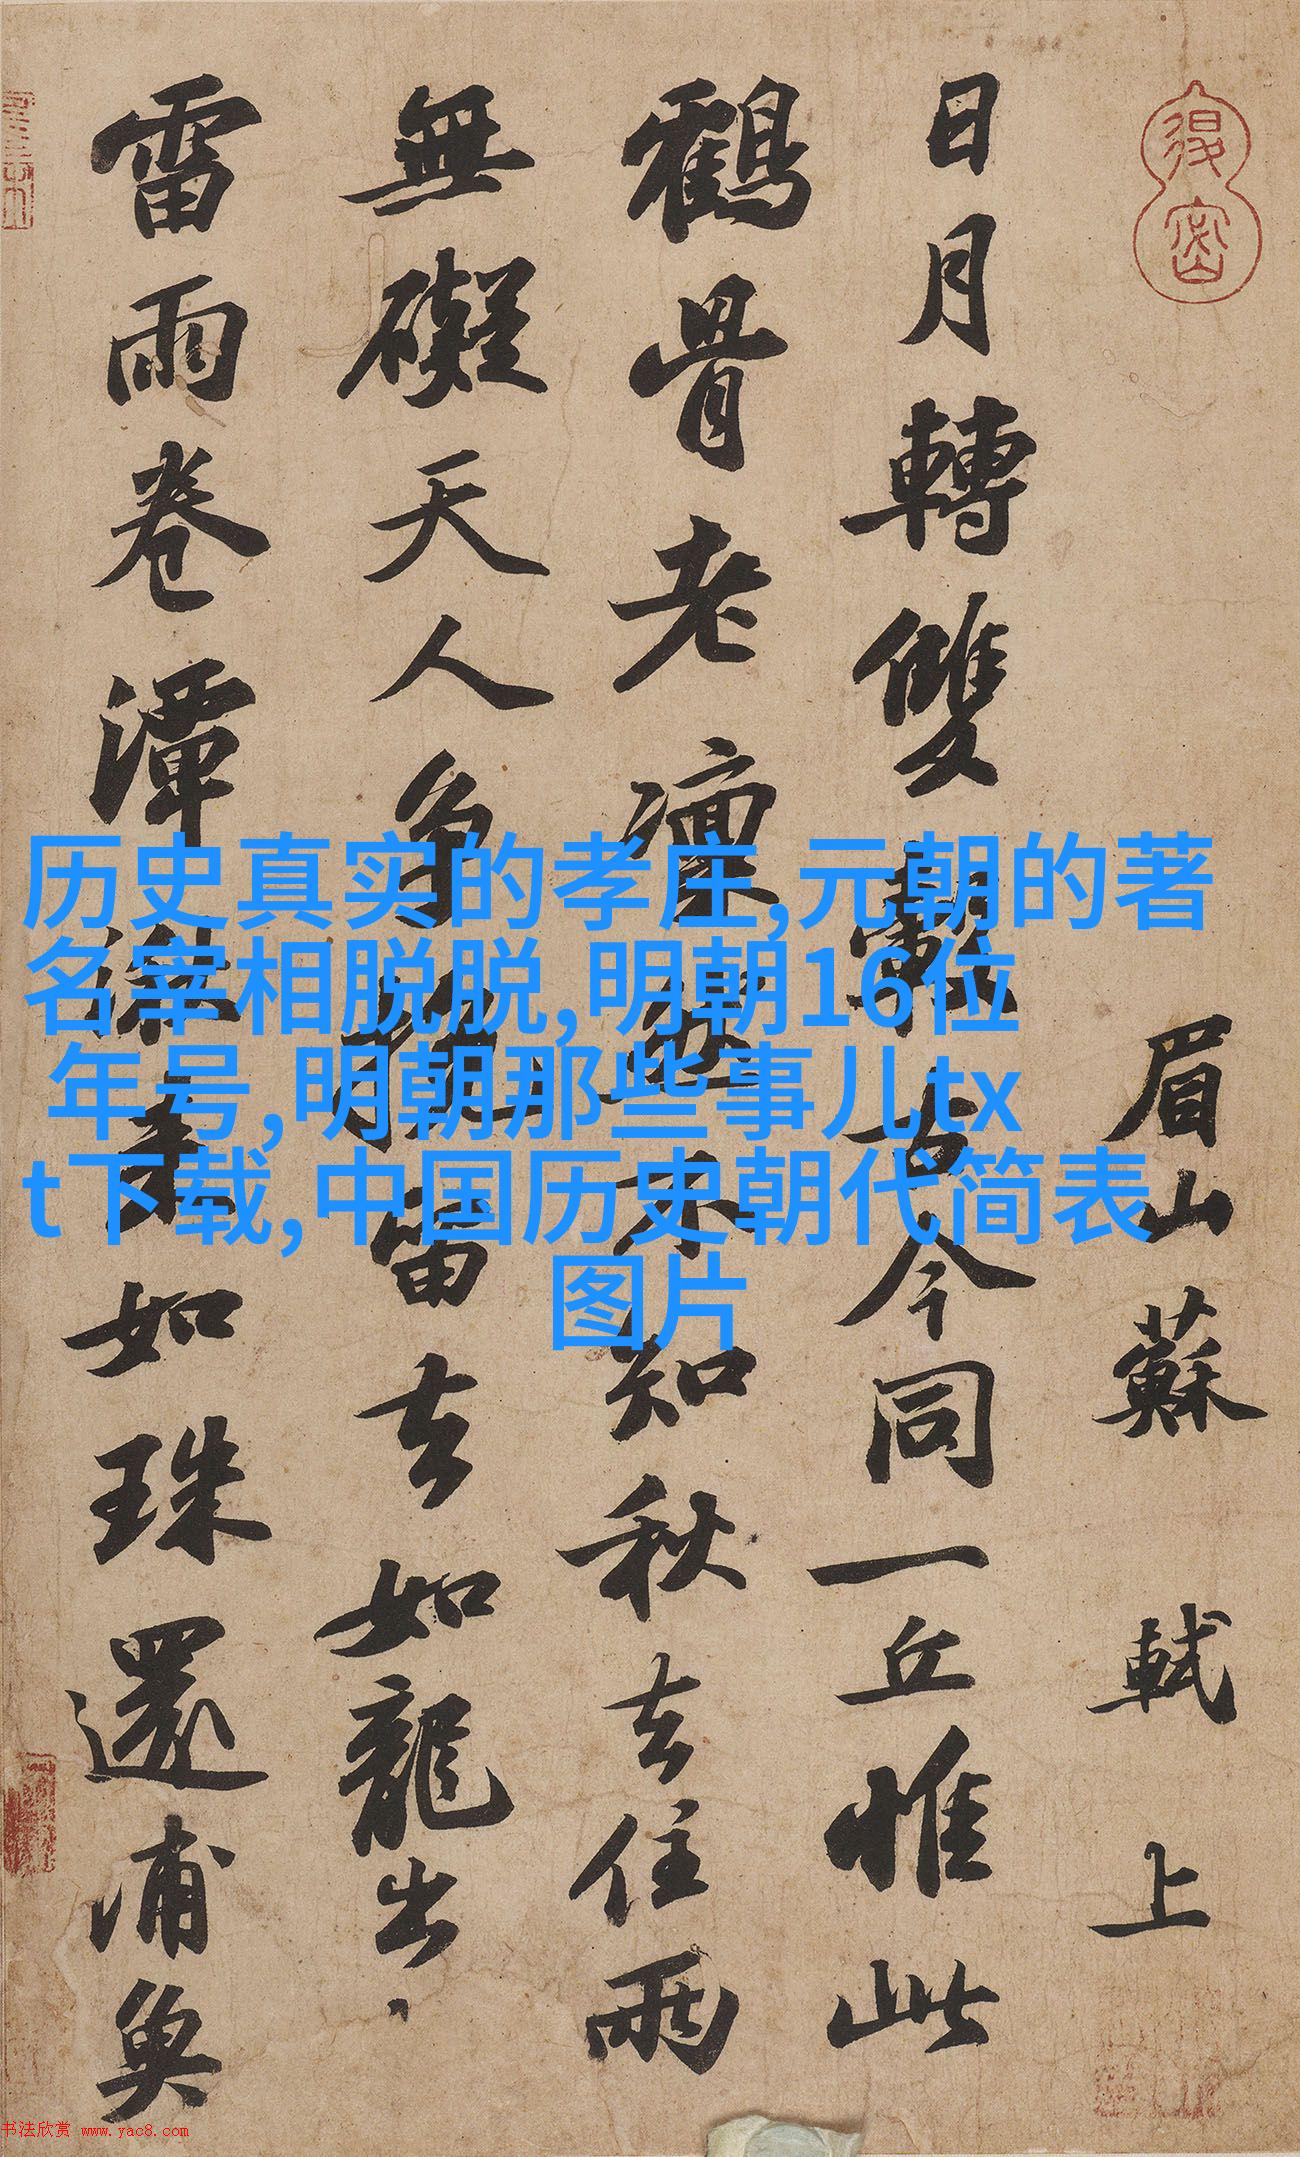 眉山蘇軾上
日月轉雙轂古今同一丘惟此
鶴骨老凜然不知秋去住兩
無礙天人争挽留去如龍出
雷雨卷潭湫来如珠還浦魚
历史真实的孝庄,元朝的著
名宰相脱脱,明朝16位
年号,明朝那些事儿tx
t下载,中国历史朝代简表
图片
书法欣赏 www.yac8.com